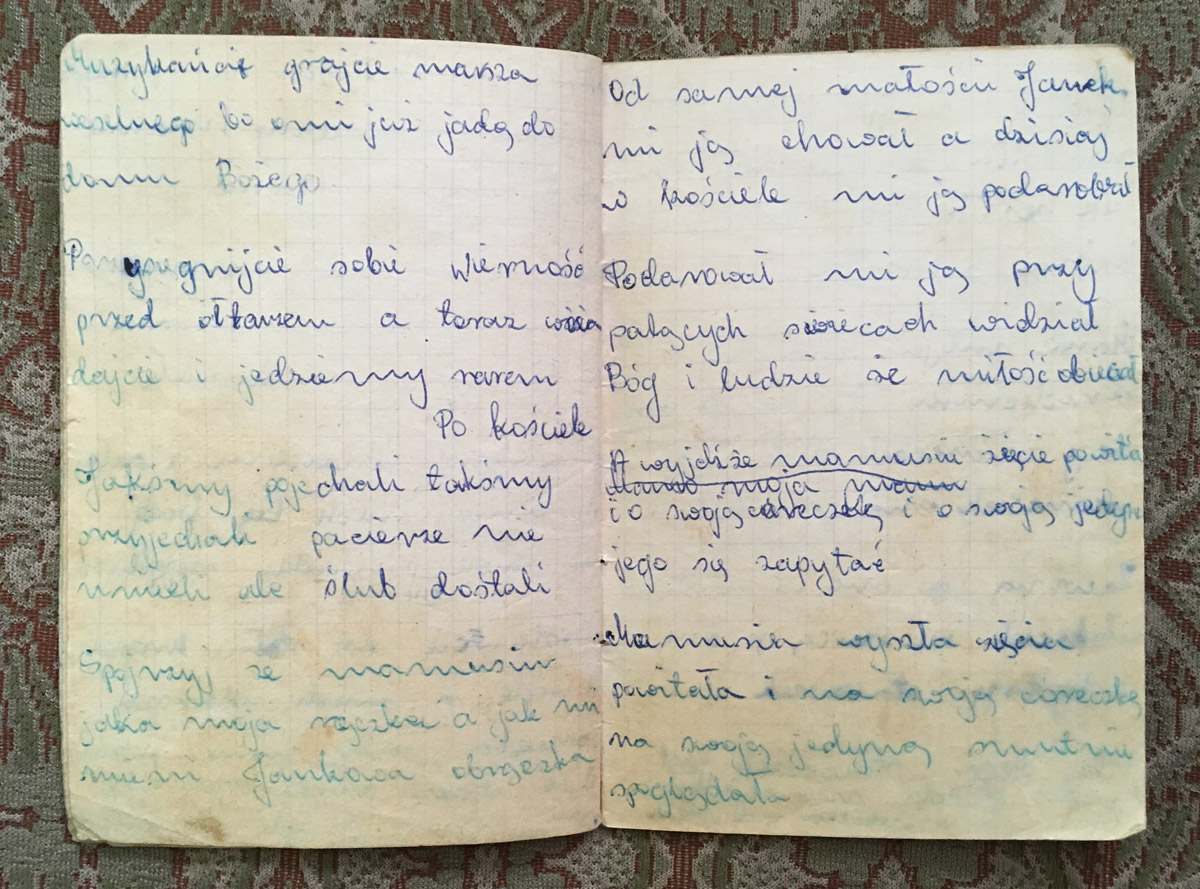 Muzykańcie grajcie marsza
weselnego bo oni już jadą do
domu Bożego
Poprzysięgnijcie sobie wierność
przed ołtarzem a teraz
dajcie i jedziemy razem
Po kościele
Jakśmy pojechali takśmy
przyjechali pacierze nie
umieli ale ślub dostali
Spojrzyj ze mamusiu
jaka moja rączka a jak mi
mieni Jankowa obrączka
Od samej małości Janek
mi ją chował a dzisiaj
w kościele mi ją podarował
Podarował mi ją przy
palących świecach widział
Bóg i ludzie że miłość obiecał
A wyjdźże mamusiu zięcia powita
moja mamu
i o swoją córeczkę i o swoją jedyn
jego się zapytać
Mamusia wyszła zięcia
powitała i na swoją córeczkę
na swoją jedyną smutnie
spoglądała